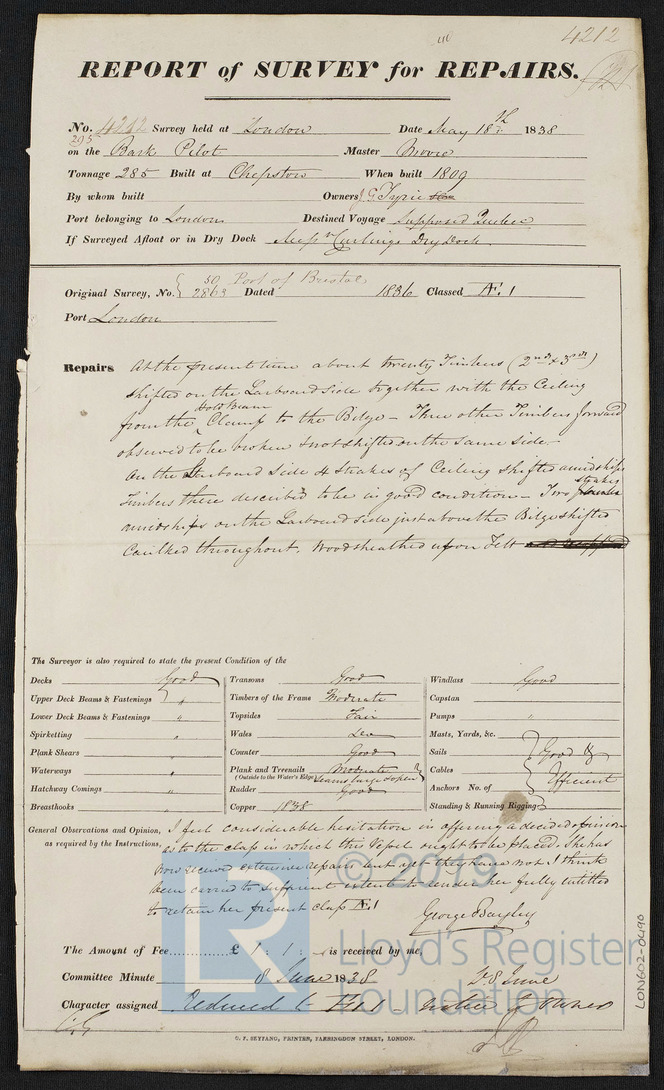 4212
REPORT of SURVEY for REPAIRS.
No. 4212 Survey held at London Date May 18th 1838
295
on the Bark Pilot Master Moore
Tonnage 285 Built at Chepstow When built 1809
By whom built Owners J G Tyrie
Port belonging to London Destined Voyage Supposed Quebec
If Surveyed Afloat or in Dry Dock Messrs Curlings Dry Dock
50 Port of Bristol
Original Survey, No. 2863 Dated 1836 Classed Æ 1
Port London
Repairs At the present time about twenty Timbers (2nd & 3rd)
shifted on the Larboard Side together with the Ceiling
Hold Beam
from the Clamp to the Bilge - Three other Timbers forward
observed to be broken & not shifted on the same side
On the Starboard Side 4 Strakes of Ceiling shifted amidships
Timbers there described to be in good condition - Two strakes
amidships on the Larboard side just above the Bilge shifted
Caulked throughout. Woodsheathed upon Felt
The Surveyor is also required to state the present Condition of the
Decks Good Transoms Good Windlass Good
Upper Deck Beams & Fastenings " Timbers of the Frame Moderate Capstan
Lower Deck Beams & Fastenings " Topsides Fair Pumps "
Spirketting " Wales Masts, Yards, &c.
Plank Shears " Counter Good Sails Good &
Waterways " Plank and Treenails Moderate Cables
(Outside to the Water's Edge) Seams large & open Efficient
Hatchway Comings " Rudder Good Anchors No. of
Breasthooks " Copper 1838 Standing & Running Rigging
General Observations and Opinion, I feel considerable hesitation in offering a decided opinion
as required by the Instructions, as to the class in which this Vessel ought to be placed. She has
now received extensive repairs and yet they have not I think
been carried to sufficient extent to render her fully entitled
to retain her present class Æ 1
George Bayley
The Amount of Fee............ £ 1 : 1 : - is received by me,
Committee Minute 8 June 1838
Character assigned Reduced to E 1 - notice to Owner
C. F. SEYFANG, PRINTER, FARRINGDON STREET, LONDON.
LON602-0490
© 2019
LR
Lloyd's Register
Foundation